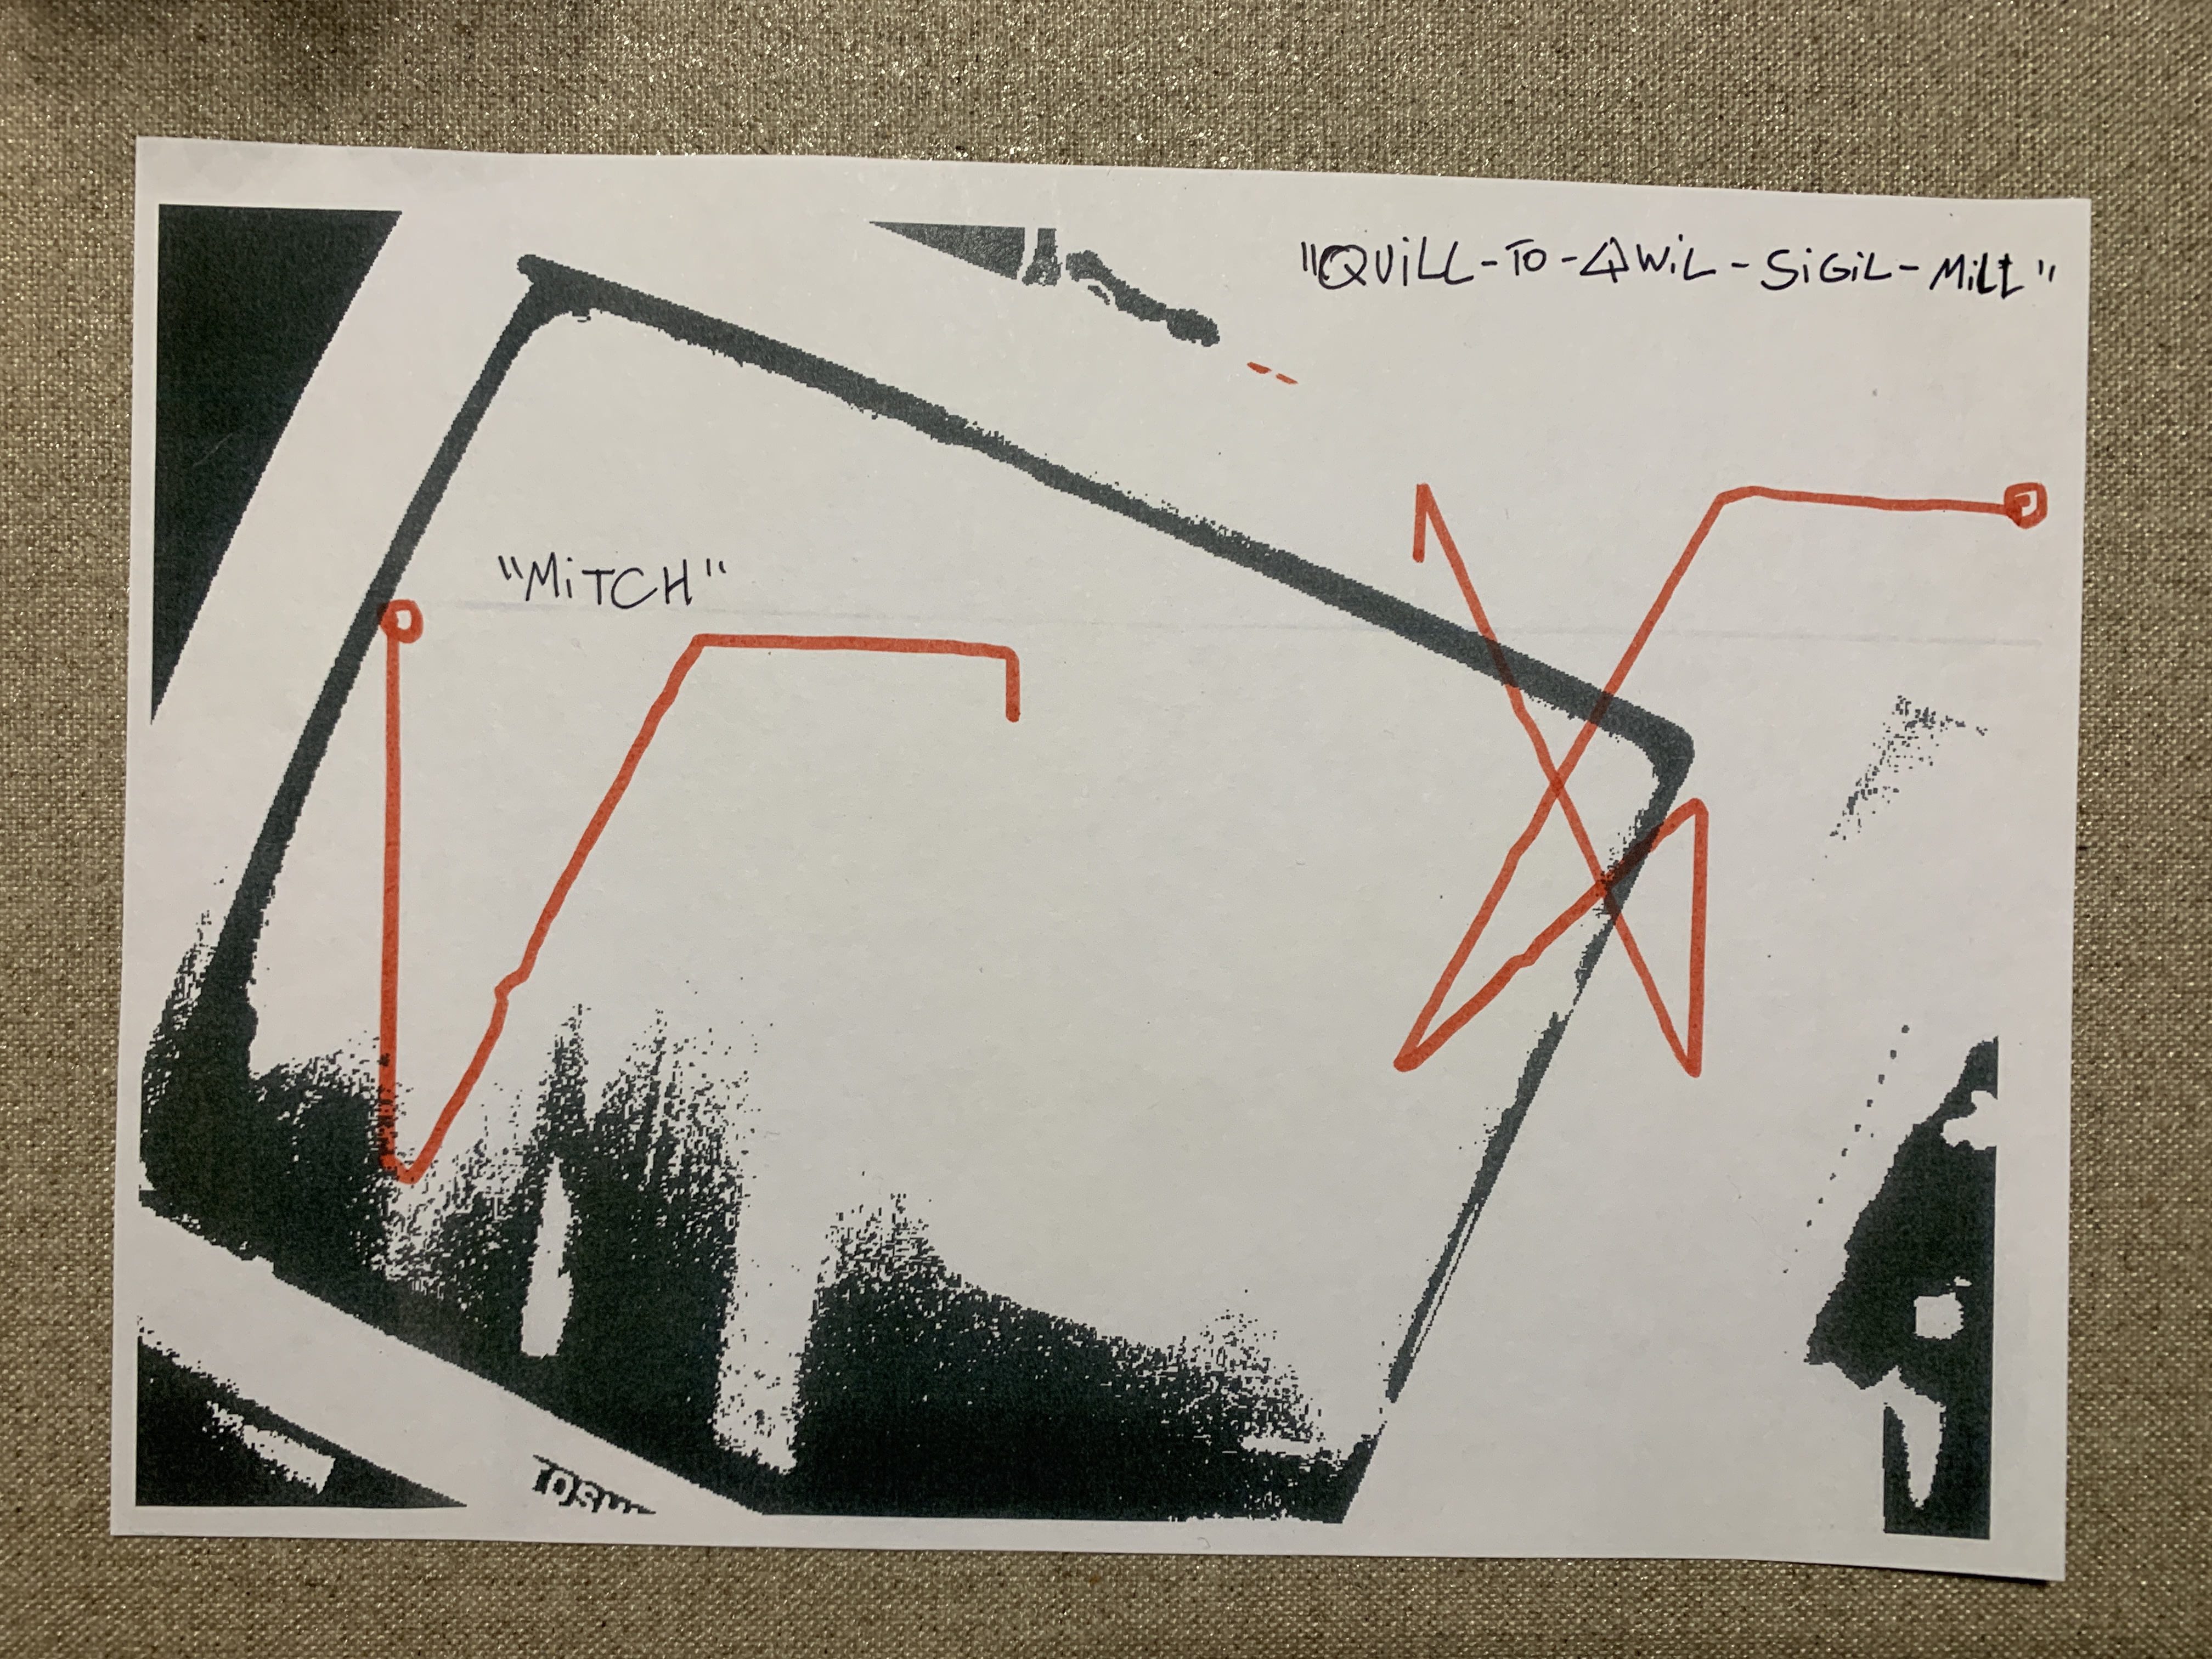 "QUiLL-TO-QWiL-SiGiL-MiLL"
"MiTCH"